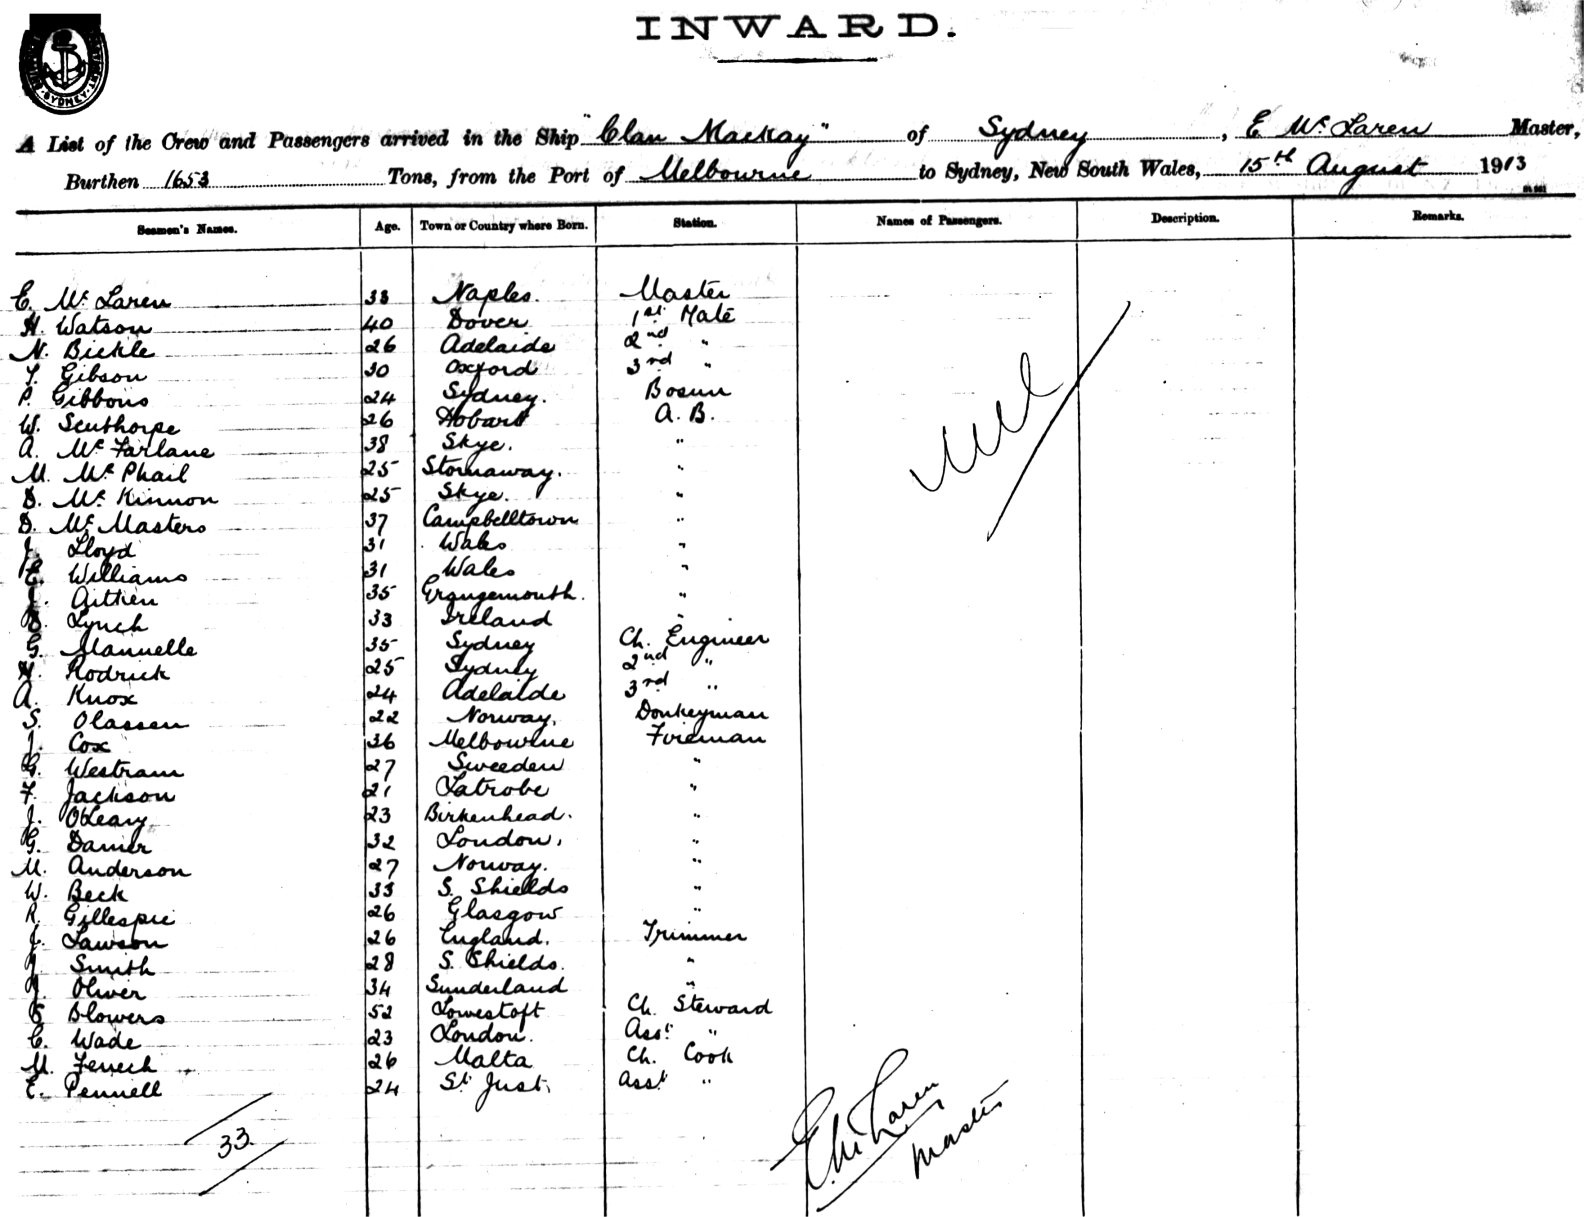 INWARD.
SYDNEY
A List of the Crew and Passengers arrived in the Ship "Clan Mackay" of Sydney, E Mc Laren Master,
Burthen 1653 Tons, from the Port of Melbourne to Sydney, New South Wales, 15th August 1913
Seamen's Names. Age. Town or Country where Born. Station. Names of Passengers. Description. Remarks.
E. Mc Laren 38 Naples. Master
H. Watson 40 Dover 1st Mate
N. Bickle 26 Adelaide 2nd "
T. Gibson 30 Oxford 3rd "
P. Gibbons 24 Sydney. Bosun
W. Scuthorpe 26 Hobart A.B.
A. Mc Farlane 38 Skye. "
M. Mc Phail 25 Stornaway. "
D. Mc Kinnon 25 Skye. "
D. Mc Masters 37 Campbelltown "
J. Lloyd 31 Wales "
E. Williams 31 Wales "
Aitken 35 Grangemouth. "
Lynch 33 Ireland "
G. Mannelle 35 Sydney Ch. Engineer
H. Rodrick 25 Sydney 2nd "
A. Knox 24 Adelaide 3rd "
S. Olassen 22 Norway, Donkeyman
J. Cox 36 Melbourne Fireman
G. Westram 27 Sweeden "
F. Jackson 21 Latrobe "
J. O'Leary 23 Birkenhead. "
G. Damer 32 London, "
M. Anderson 27 Norway. "
W. Beck 33 S. Shields "
R. Gillespie 26 Glasgow "
J. Lawson 26 England. Trimmer
J. Smith 28 S. Shields. "
J. Oliver 34 Sunderland "
E Blowers 52 Lowestoft Ch. Steward
C. Wade 23 London. Asst "
M. Fenech 26 Malta Ch. Cook
E. Pennell 24 St Just, Asst "
33.
Nil
E Mc Laren
Master